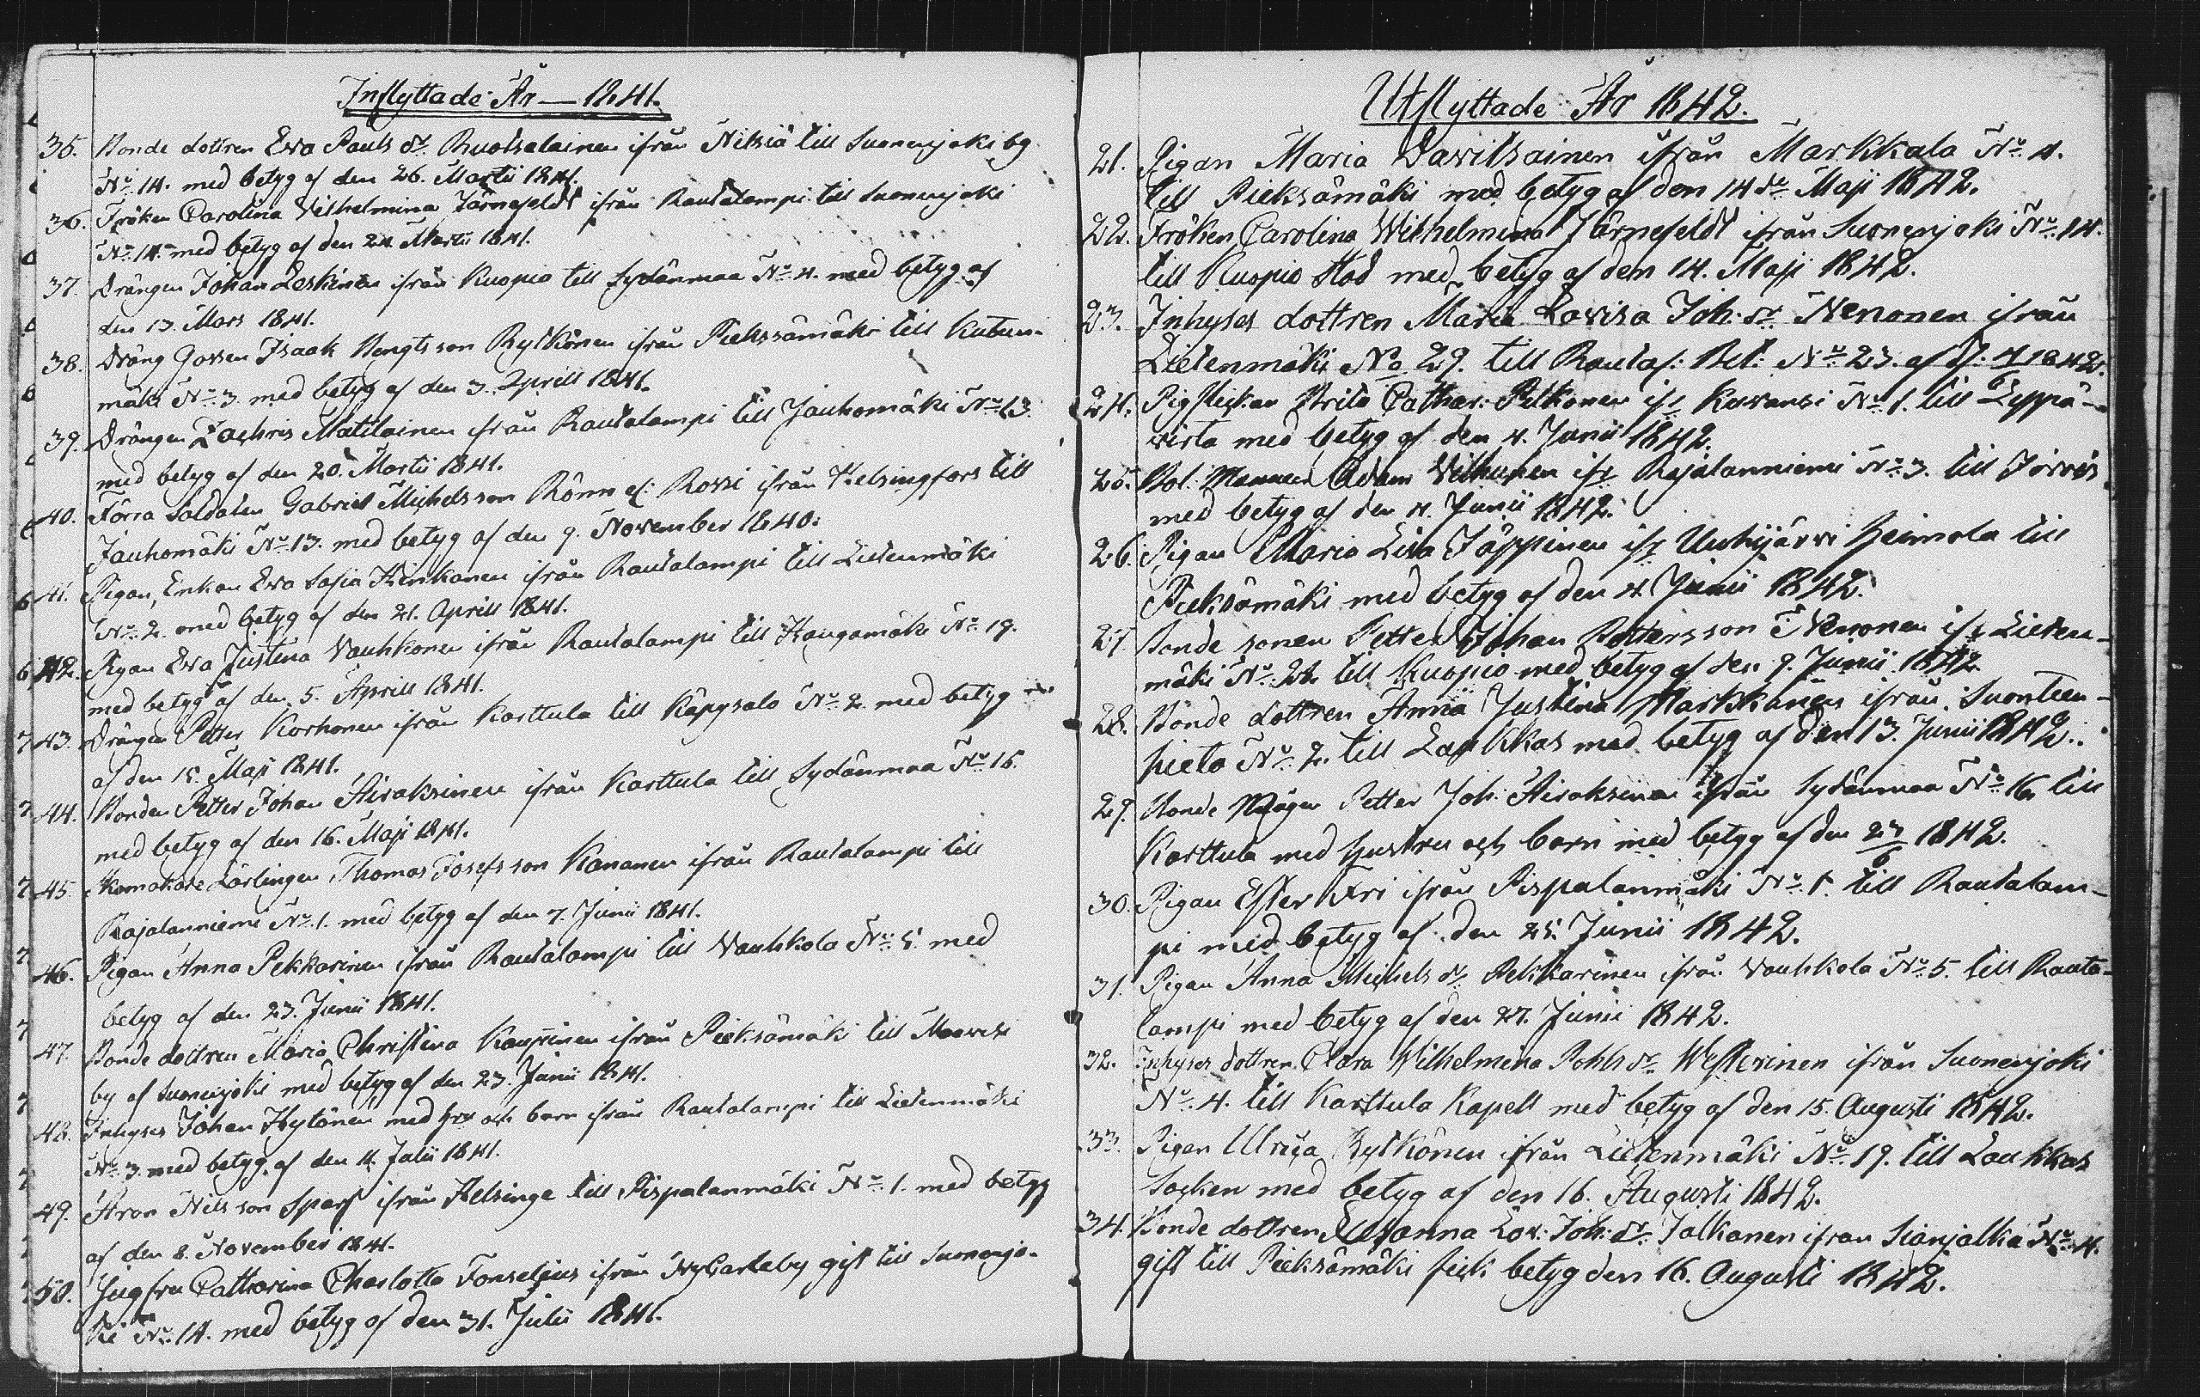 Inflyttade År — 1841.
35. Bonde dottren Eva Pauls dr. Ruotsalainen ifrån Nilsiä till Suonenjoki by
No. 14. med betyg af den 26. Martii 1841.
36. Fröken Carolina Vilhelmina Järnefeldt ifrån Rautalampi till Suonenjoki
No. 14. med betyg af den 24 Martii 1841.
37. Drängen Johan Leskinen ifrån Kuopio till Sydänmaa No. 4. med betyg af
den 13. Mars 1841.
38. Dräng Gossen Isaak Bengtsson Rytkönen ifrån Pieksämäki till Kutum-
mäki No. 3. med betyg af den 3. Aprill 1841.
39. Drängen Zachris Matilainen ifrån Rautalampi till Jauhomäki No. 13.
med betyg af den 20. Martii 1841.
40. Förra Soldaten Gabriel Michelsson Rönn el. Rossi ifrån Helsingfors till
Jauhomäki No. 13. med betyg af den 9. November 1840.
41. Pigan, Enkan Eva Sofia Hinkanen ifrån Rautalampi till Lietenmäki
No. 2. med betyg af den 21. Aprill 1841.
42. Pigan Eva Justina Vauhkonen ifrån Rautalampi till Haugamäki No. 19.
med betyg af den 5. Aprill 1841.
43. Drängen Petter Korhonen ifrån Karttula till Käpysalo No. 2. med betyg
af den 15. Maji 1841.
44. Bonden Petter Johan Hiraksinen ifrån Karttula till Sydänmaa No. 16
med betyg af den 16. Maji 1841.
45. Skomakare Lärlingen Thomas Josefsson Kananen ifrån Rautalampi till
Rajalanniemi No. 1. med betyg af den 7. Junii 1841.
46. Pigan Anna Pekkarinen ifrån Rautalampi till Vauhkola No. 5. med
betyg af den 23. Junii 1841.
47. Bonde dottren Maria Christina Kauppinen ifrån Pieksämäki till
by af Suonenjoki med betyg af den 23. Junii 1841.
48. Inhyses Johan Hytönen med hru och barn ifrån Rautalampi till Lietenmäki
No. 3. med betyg af den 11. Julii 1841.
49. Aron Nilsson Sparf ifrån Helsinge till Pispalanmäki No. 1. med betyg
af den 8. November 1841.
50. Jugfru Catharina Charlotta Fonselius ifrån NyCarleby gift till Suonenjo-
ki No. 14. med betyg af den 31. Julii 1841.
Utflyttade År 1842.
21. Pigan Maria Davitsainen ifrån Markkala No. 4.
till Pieksämäki med betyg af den 14de Maji 1842.
22. Fröken Carolina Wilhelmina Järnefeldt ifrån Suonenjoki No. 14.
till Kuopio stad med betyg af den 14. Maji 1842.
23. Inhyses dottren Maria Lovisa Joh. dr. Nenonen ifrån
Lietenmäki No 29. till Rautal: Bet: No. 23. af d. 4/6 1842.
24. Pigflickan Brita Cathar: Pelkonen ifr Kuvansi No. 1. till Leppä-
virta med betyg af den 4. Junii 1842.
25. Bol: Mannen Adam Vilhunen ifr Rajalanniemi No. 3. till Jorois
med betyg af den 4. Junii 1842.
26. Pigan Maria Lisa Jäppinen ifr Uuhijärvi Heimola till
Pieksämäki med betyg af den 4. Junii 1842.
27. Bonde sonen Petter Johan Pettersson Nenonen ifr Lieten-
mäki No. 22. till Kuopio med betyg af den 9. Junii 1842
28. Bonde dottren Anna Justina Markkanen ifrån Suonteen-
pieto No. 2. till Laukkas med betyg af den 13. Junii 1842.
29. Bonde Mågen Petter Joh: Hiraksinen ifrån Sydänmaa No. 16. till
Karttula med hustru och barn med betyg af den 27/6 1842.
30. Pigan Ester Fri ifrån Pispalanmäki No. 1. till Rautalam-
pi med betyg af den 25. Junii 1842.
31. Pigan Anna Michels dr. Pekkarinen ifrån Vauhkola No. 5. till Rauta-
lampi med betyg af den 27. Junii 1842.
32. Inhyses dottren Clara Wilhelmina Pehls dr. Westerinen ifrån Suonenjoki
No. 4. till Karttula Kapell med betyg af den 15. Augusti 1842.
33. Pigan Ulrica Rytkönen ifrån Lietenmäki No. 19. till Laukkas
Socken med betyg af den 16. Augusti 1842.
34. Bonde dottren Susanna Lov: Joh: dr. Jalkanen ifrån Sianjalka No. 4.
gift till Pieksämäki fick betyg den 16. Augusti 1842.